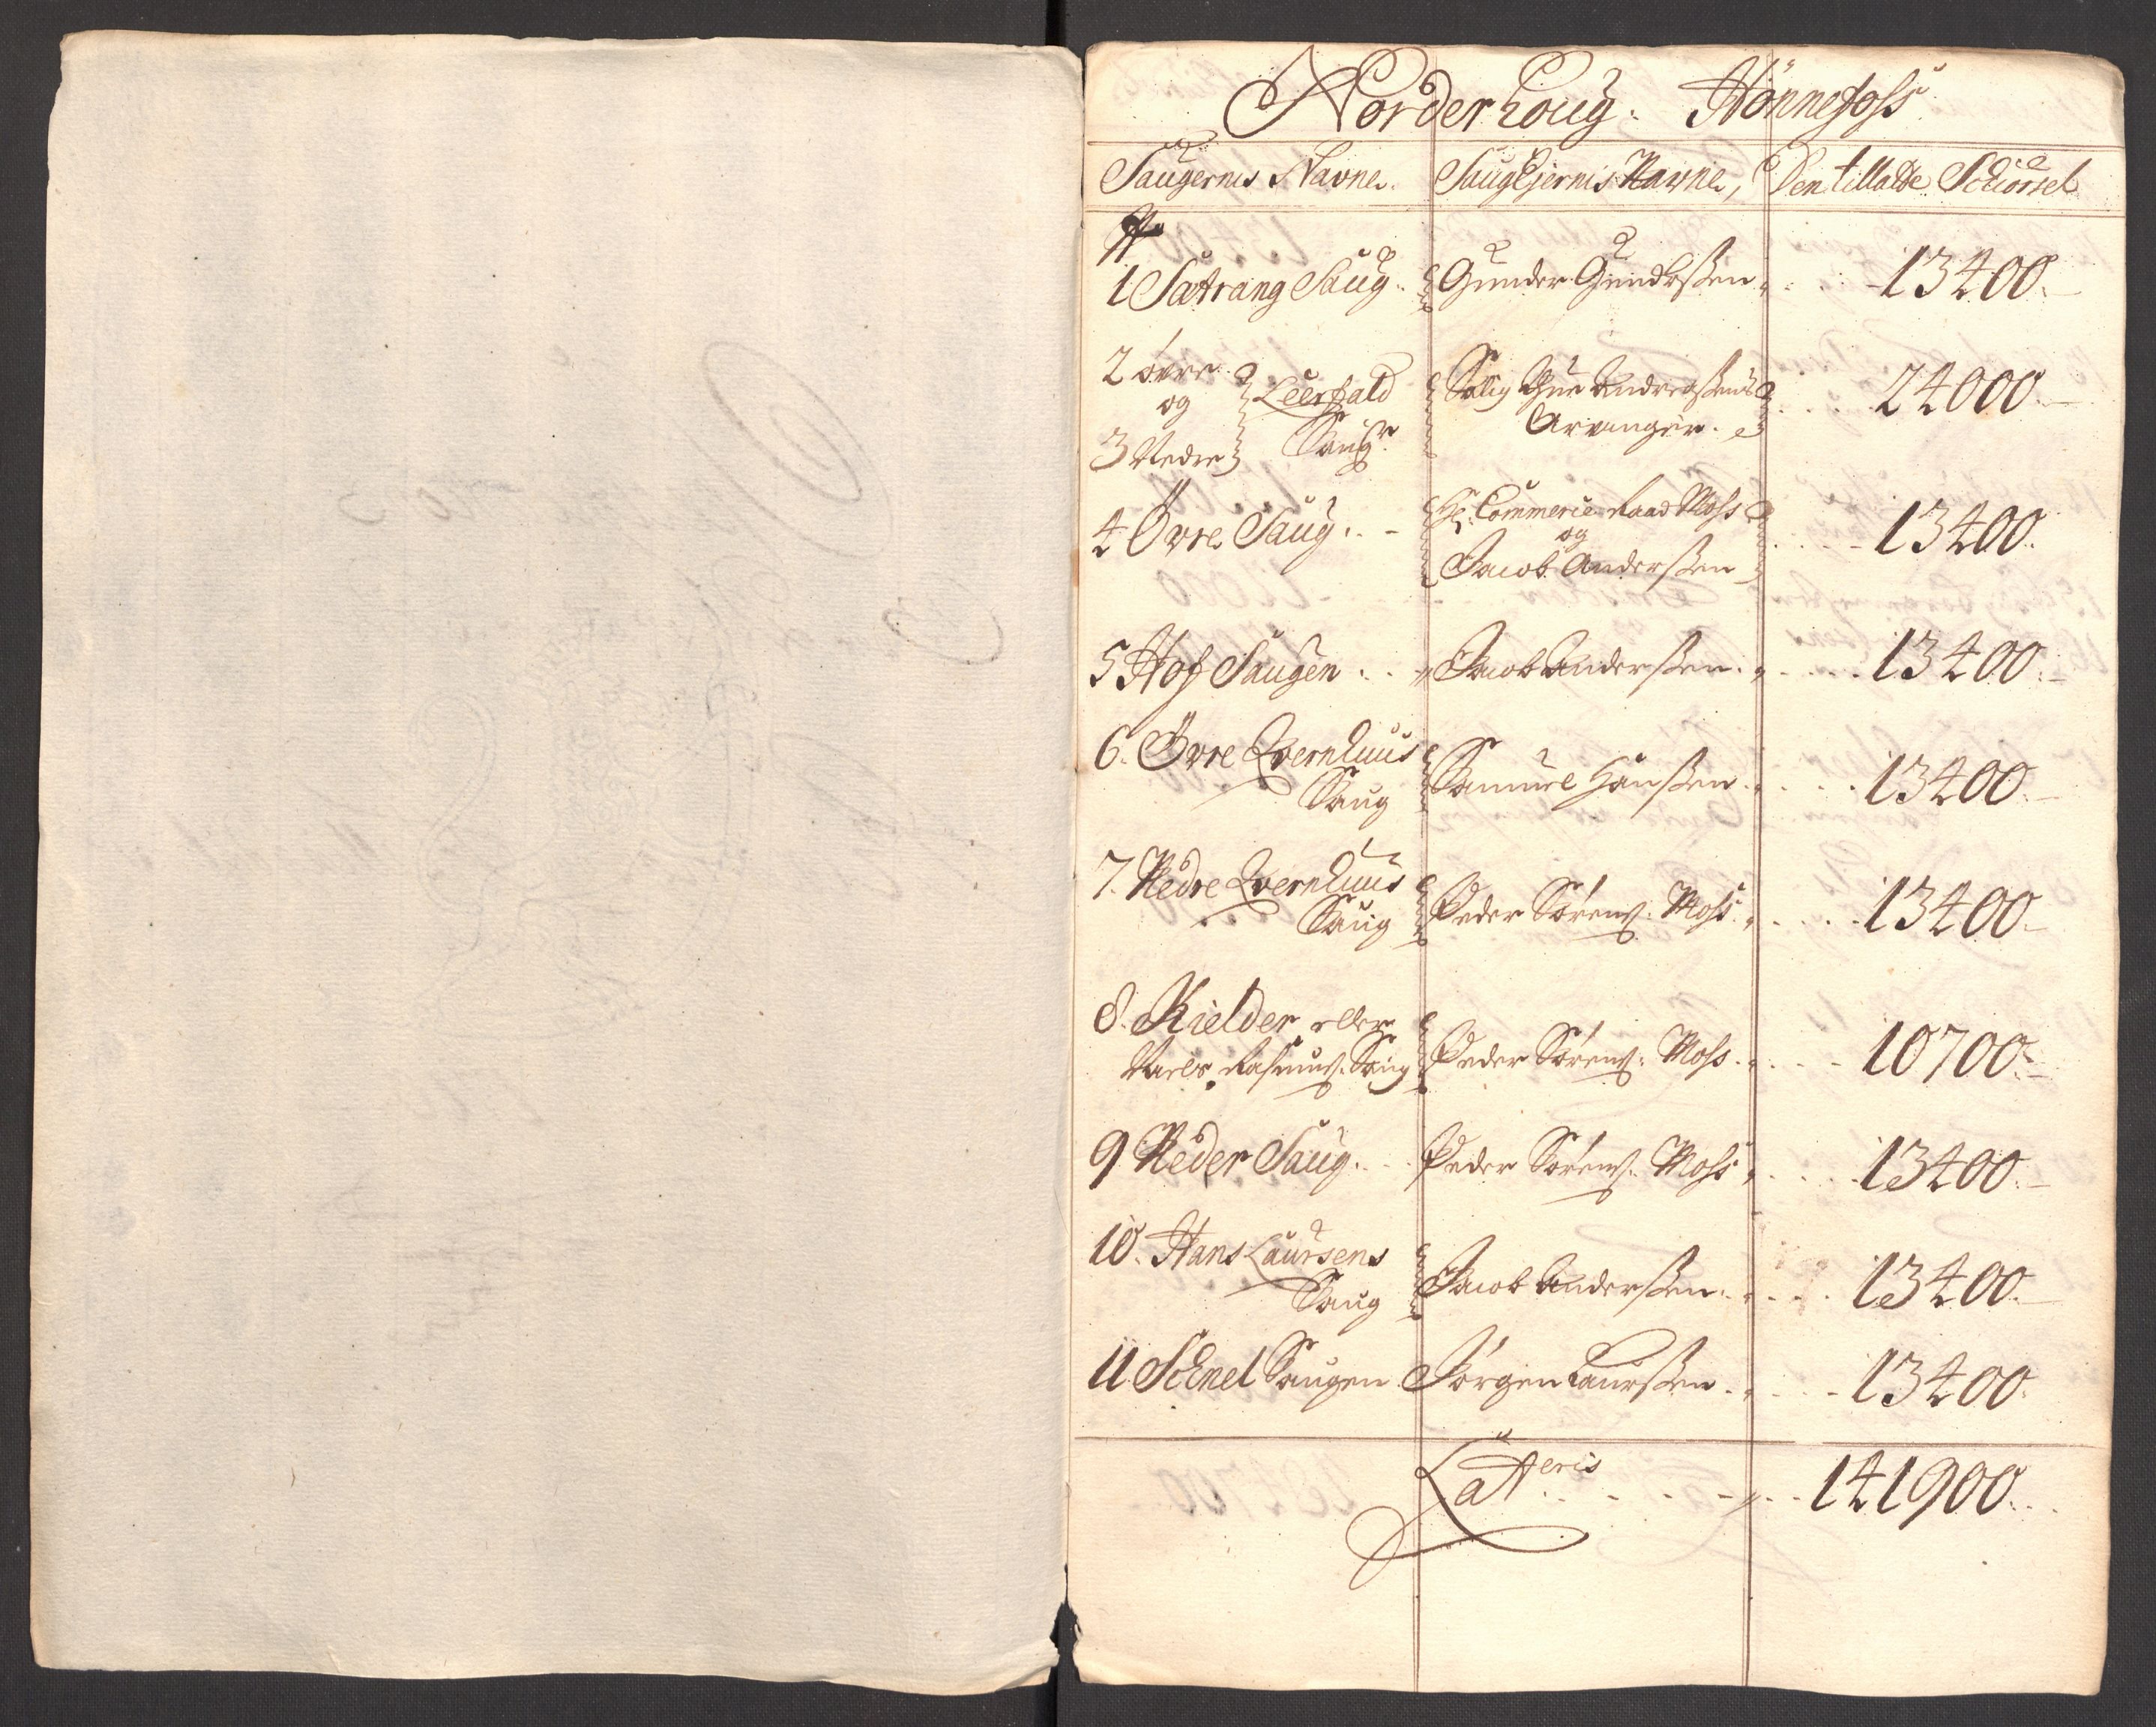 Norderhoug. Hönnefoss
Saugernes Navne. Saugejernis Navne, Den tillatte Schiörsel
No
1 Sætrang Saug. Gunder Gundersßen 13400.
2 øvre og 3 Nedre Leerfald Saug Salig Andreaßens Arvinger. 24000
4 Övre Saug. Hr. Commerce Raad Moss og Jacob Anderßen 13400.
5 Hof Saugen Jacob Anderßen. 13400.
6. Övre Qvernhuus Saug Samuel Hanßen. 13400.
7. Nedre Qvernhuus Saug Peder Sørens. Moss. 13400
8. Kielder eller Niels Rasmus. Saug Peder Sørens. Moss. 10700.
9 Neder Saug. Peder Sørens. Moss 13400.
10. Hans Laursens Saug Jacob Anderßen. 13400.
11 Schnel Saugen. Jørgen Laurßen. 13400.
Latteris 141900.